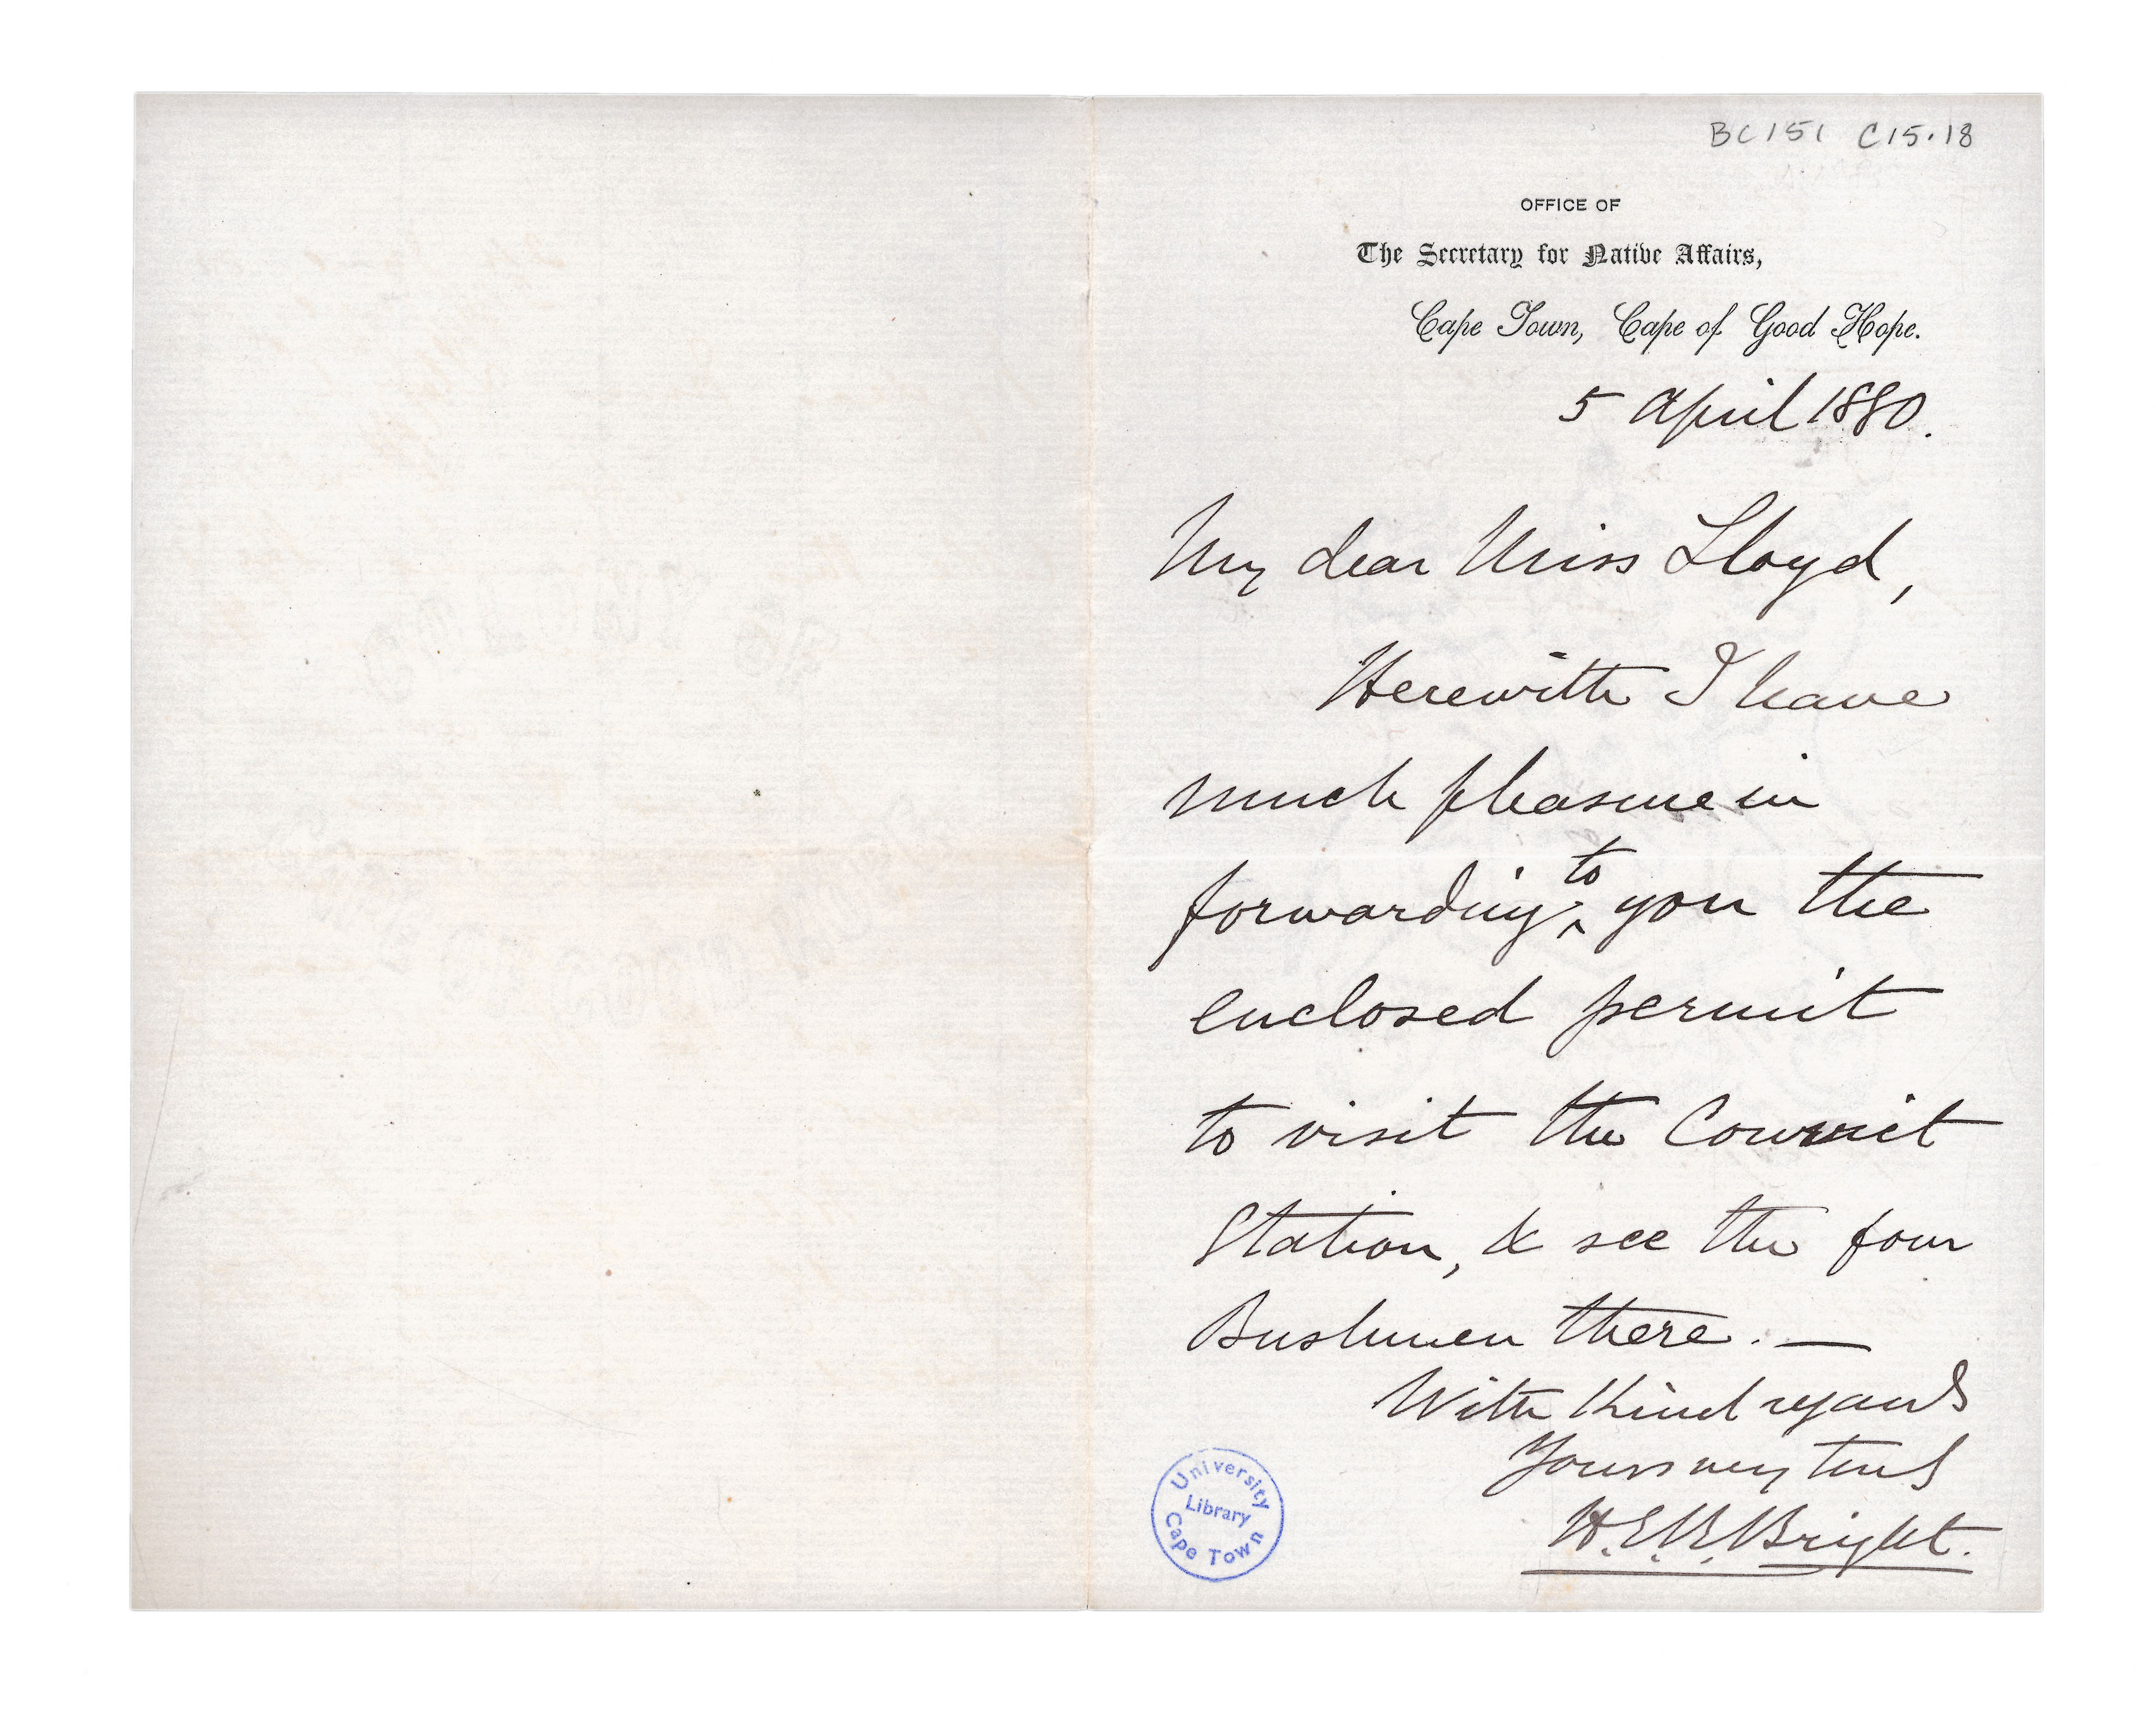 BC151 C15.18
OFFICE OF
The Secretary for Native Affairs,
Cape Town, Cape of Good Hope.
5 April 1880.
My dear Miss Lloyd,
Herewith I have
much pleasure in
forwarding to you the
enclosed permit
to visit the Convict
Station, & see the four
Bushmen there. —
With Kind regards
Yours very truly
H.E.R. Bright.
University
Library
Cape Town